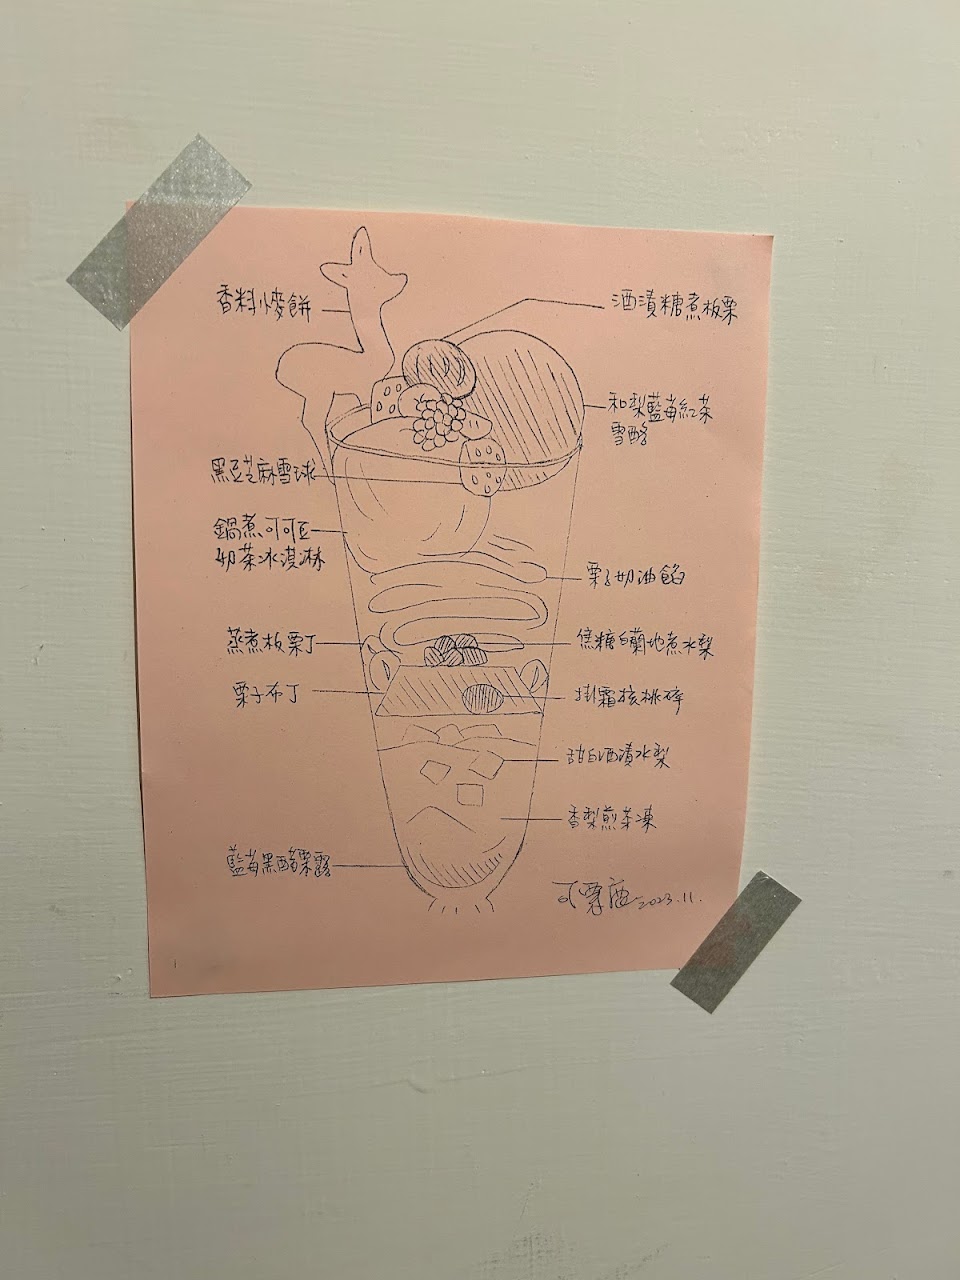 香料小麥餅
酒漬糖煮板栗
和梨藍莓紅茶
雪酪
黑豆芝麻雪球
鍋煮可可豆
奶茶冰淇淋
栗子奶油餡
蒸煮板栗丁
焦糖白蘭地煮水梨
栗子布丁
掛霜核桃碎
甜白酒漬水梨
香梨煎茶凍
藍莓黑醋栗露
2023.11.